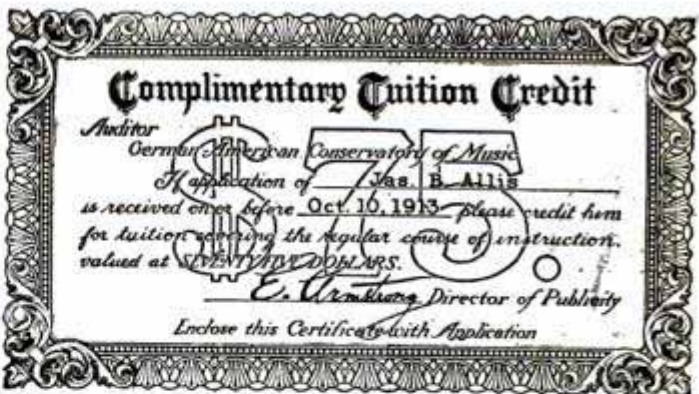 Complimentary Tuition Credit
Auditor
German American Conservatory of Music
If application of Jas. B. Allis
is received on or before Oct. 10, 1913 please credit him
for tuition covering the regular course of instruction,
valued at SEVENTY-FIVE DOLLARS.
$75.
E. Armstrong Director of Publicity
Enclose this Certificate with Application